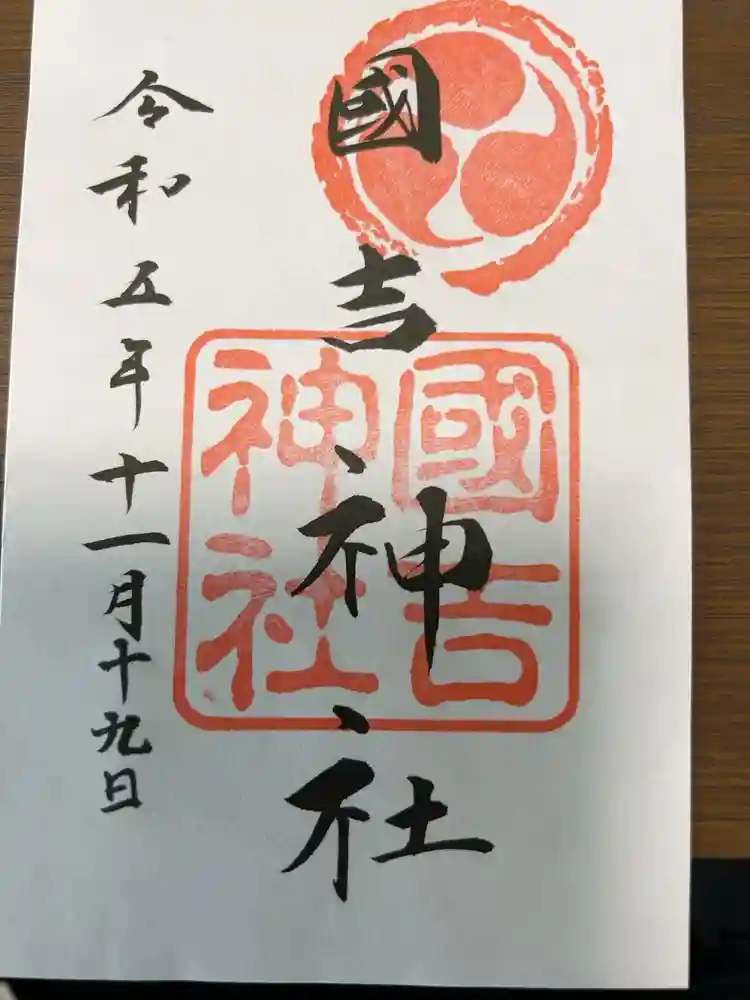 國吉神社
國吉
神社
令和五年十一月十九日